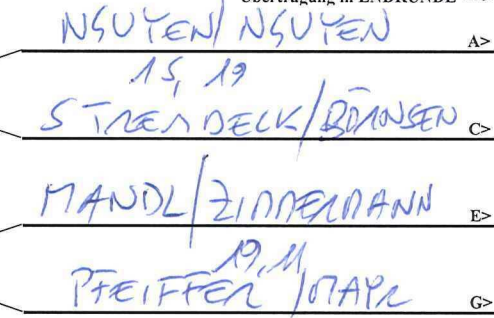 Übertragung in ENDRUNDE
NGUYEN/NGUYEN A>
15, 19
STREMDECK/BÖRNSEN C>
MANDL/ZIMMERMANN E>
19,11
PFEIFFER/MAYR G>